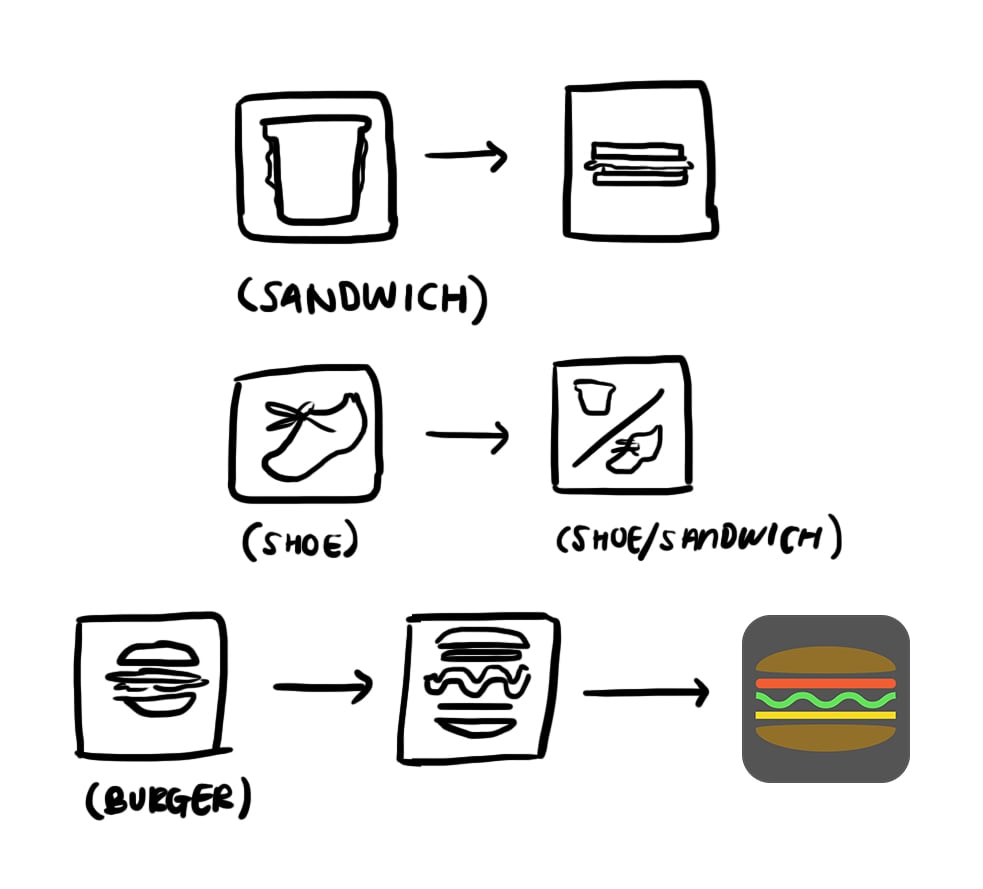 (SANDWICH)
(SHOE)
(SHOE/SANDWICH)
(BURGER)